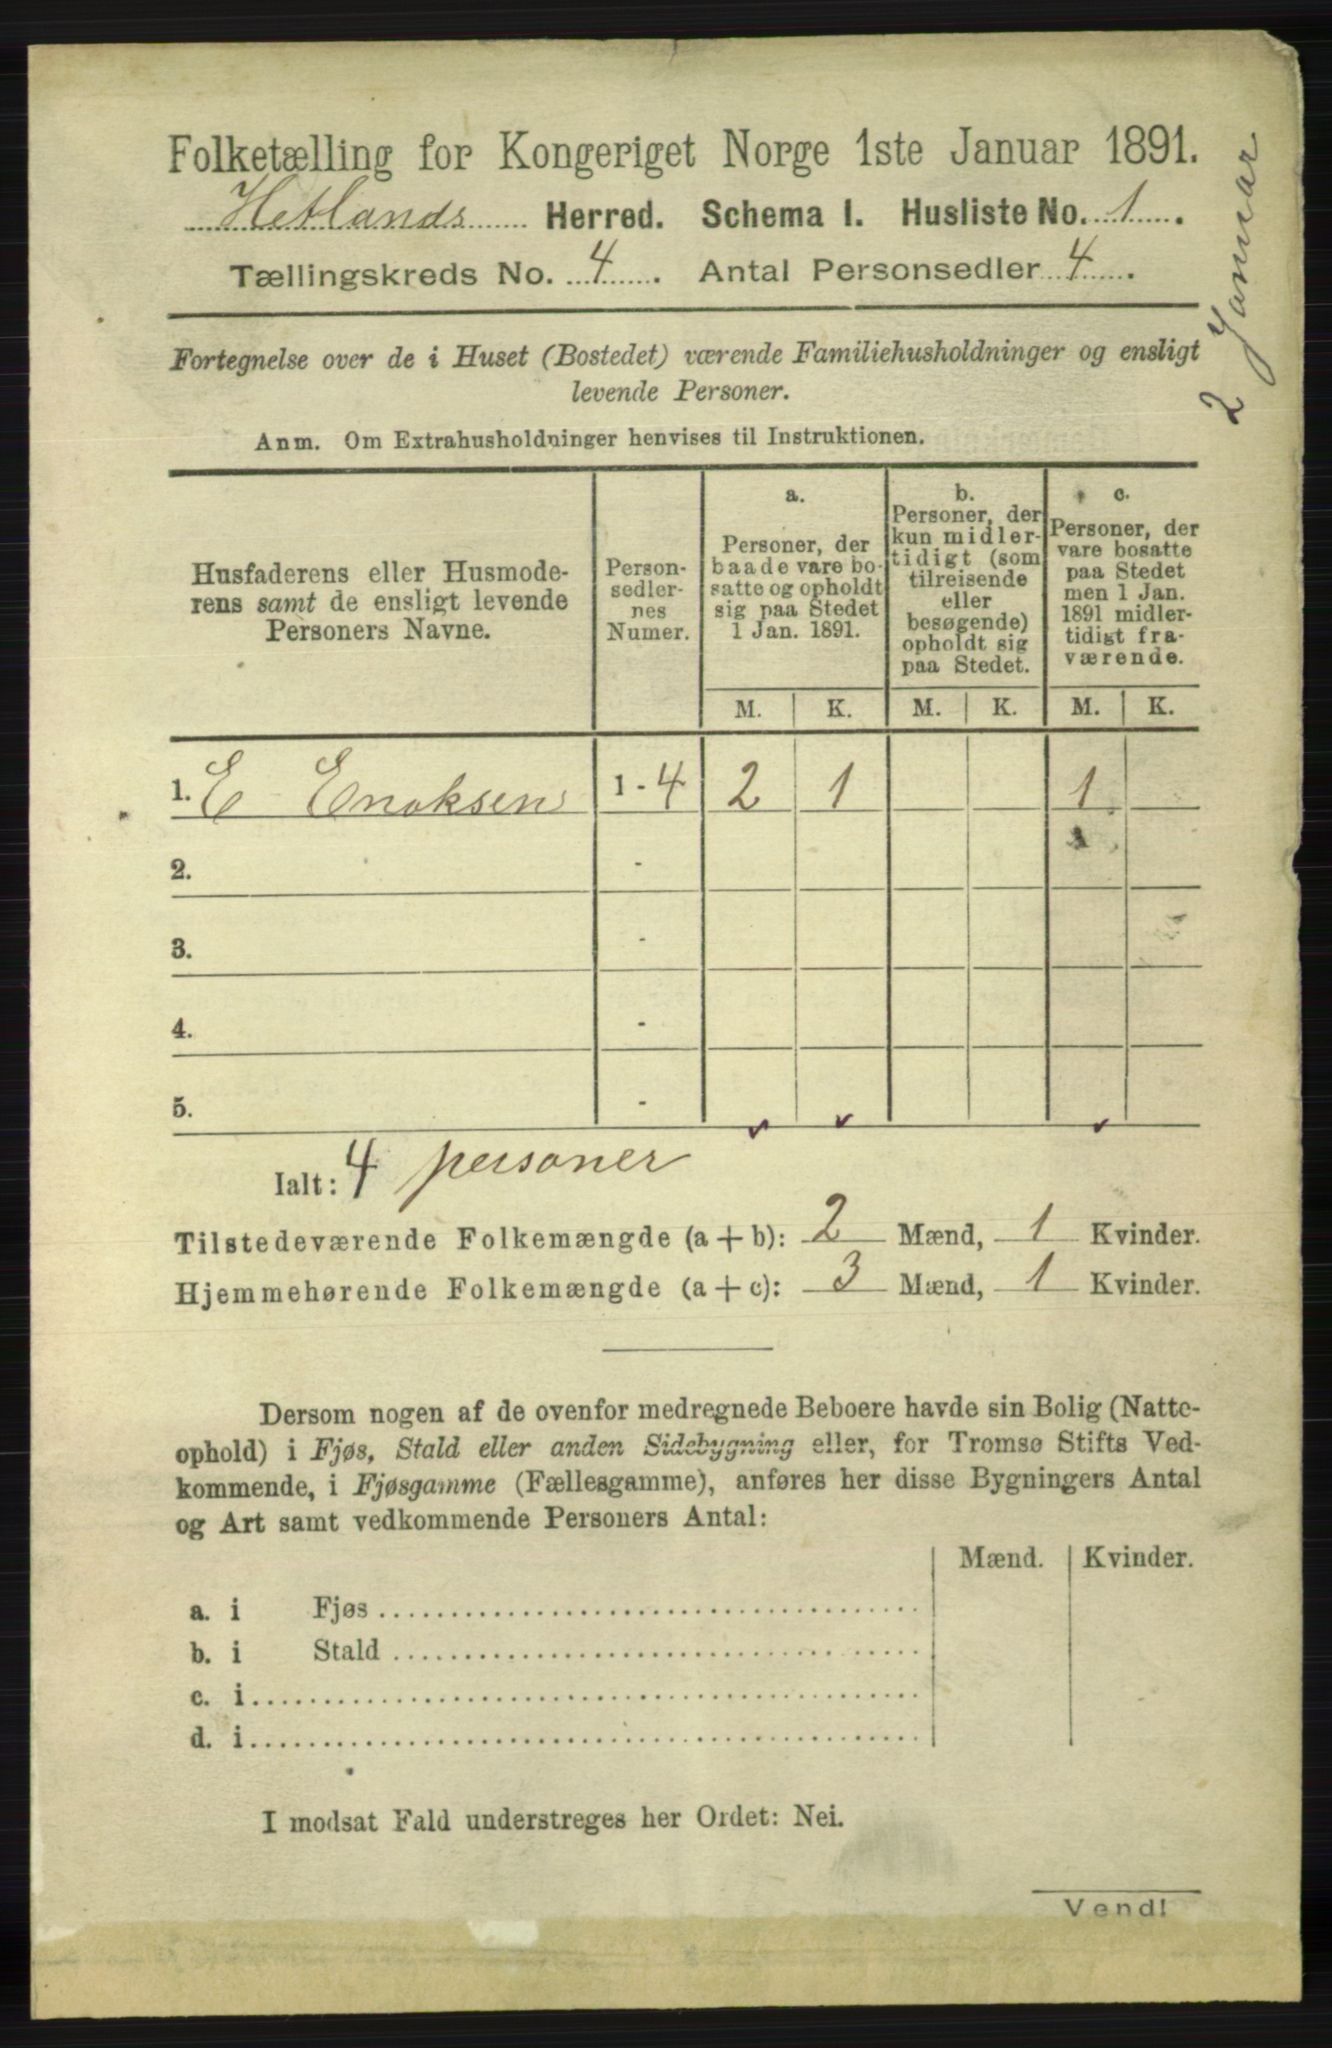 Folketælling for Kongeriget Norge 1ste Januar 1891.
Hetlands Herred. Schema I. Husliste No. 1.
Tællingskreds No. 4. Antal Personsedler 4.
2 Januar
Fortegnelse over de i Huset (Bostedet) værende Familiehusholdninger og ensligt
levende Personer.
Anm. Om Extrahusholdninger henvises til Instruktionen.
Husfaderens eller Husmode-
rens samt de ensligt levende
Personers Navne.
Person-
sedler-
nes
Numer.
a.
Personer, der
baade vare bo-
satte og opholdt
sig paa Stedet
1 Jan. 1891.
b.
Personer, der
kun midler-
tidigt (som
tilreisende
eller
besøgende)
opholdt sig
paa Stedet.
c.
Personer, der
vare bosatte
paa Stedet
men 1 Jan.
1891 midler-
tidigt fra-
værende.
M. K. M. K. M. K.
1. E Enoksen 1 - 4 2 1 1
2. -
3. -
4. -
5. -
Ialt: 4 personer
Tilstedeværende Folkemængde (a + b): 2 Mænd, 1 Kvinder.
Hjemmehørende Folkemængde (a + c): 3 Mænd, 1 Kvinder.
Dersom nogen af de ovenfor medregnede Beboere havde sin Bolig (Natte-
ophold) i Fjøs, Stald eller anden Sidebygning eller, for Tromsø Stifts Ved-
kommende, i Fjøsgamme (Fællesgamme), anføres her disse Bygningers Antal
og Art samt vedkommende Personers Antal:
Mænd. Kvinder.
a. i Fjøs
b. i Stald
c. i
d. i
I modsat Fald understreges her Ordet: Nei.
Vend!